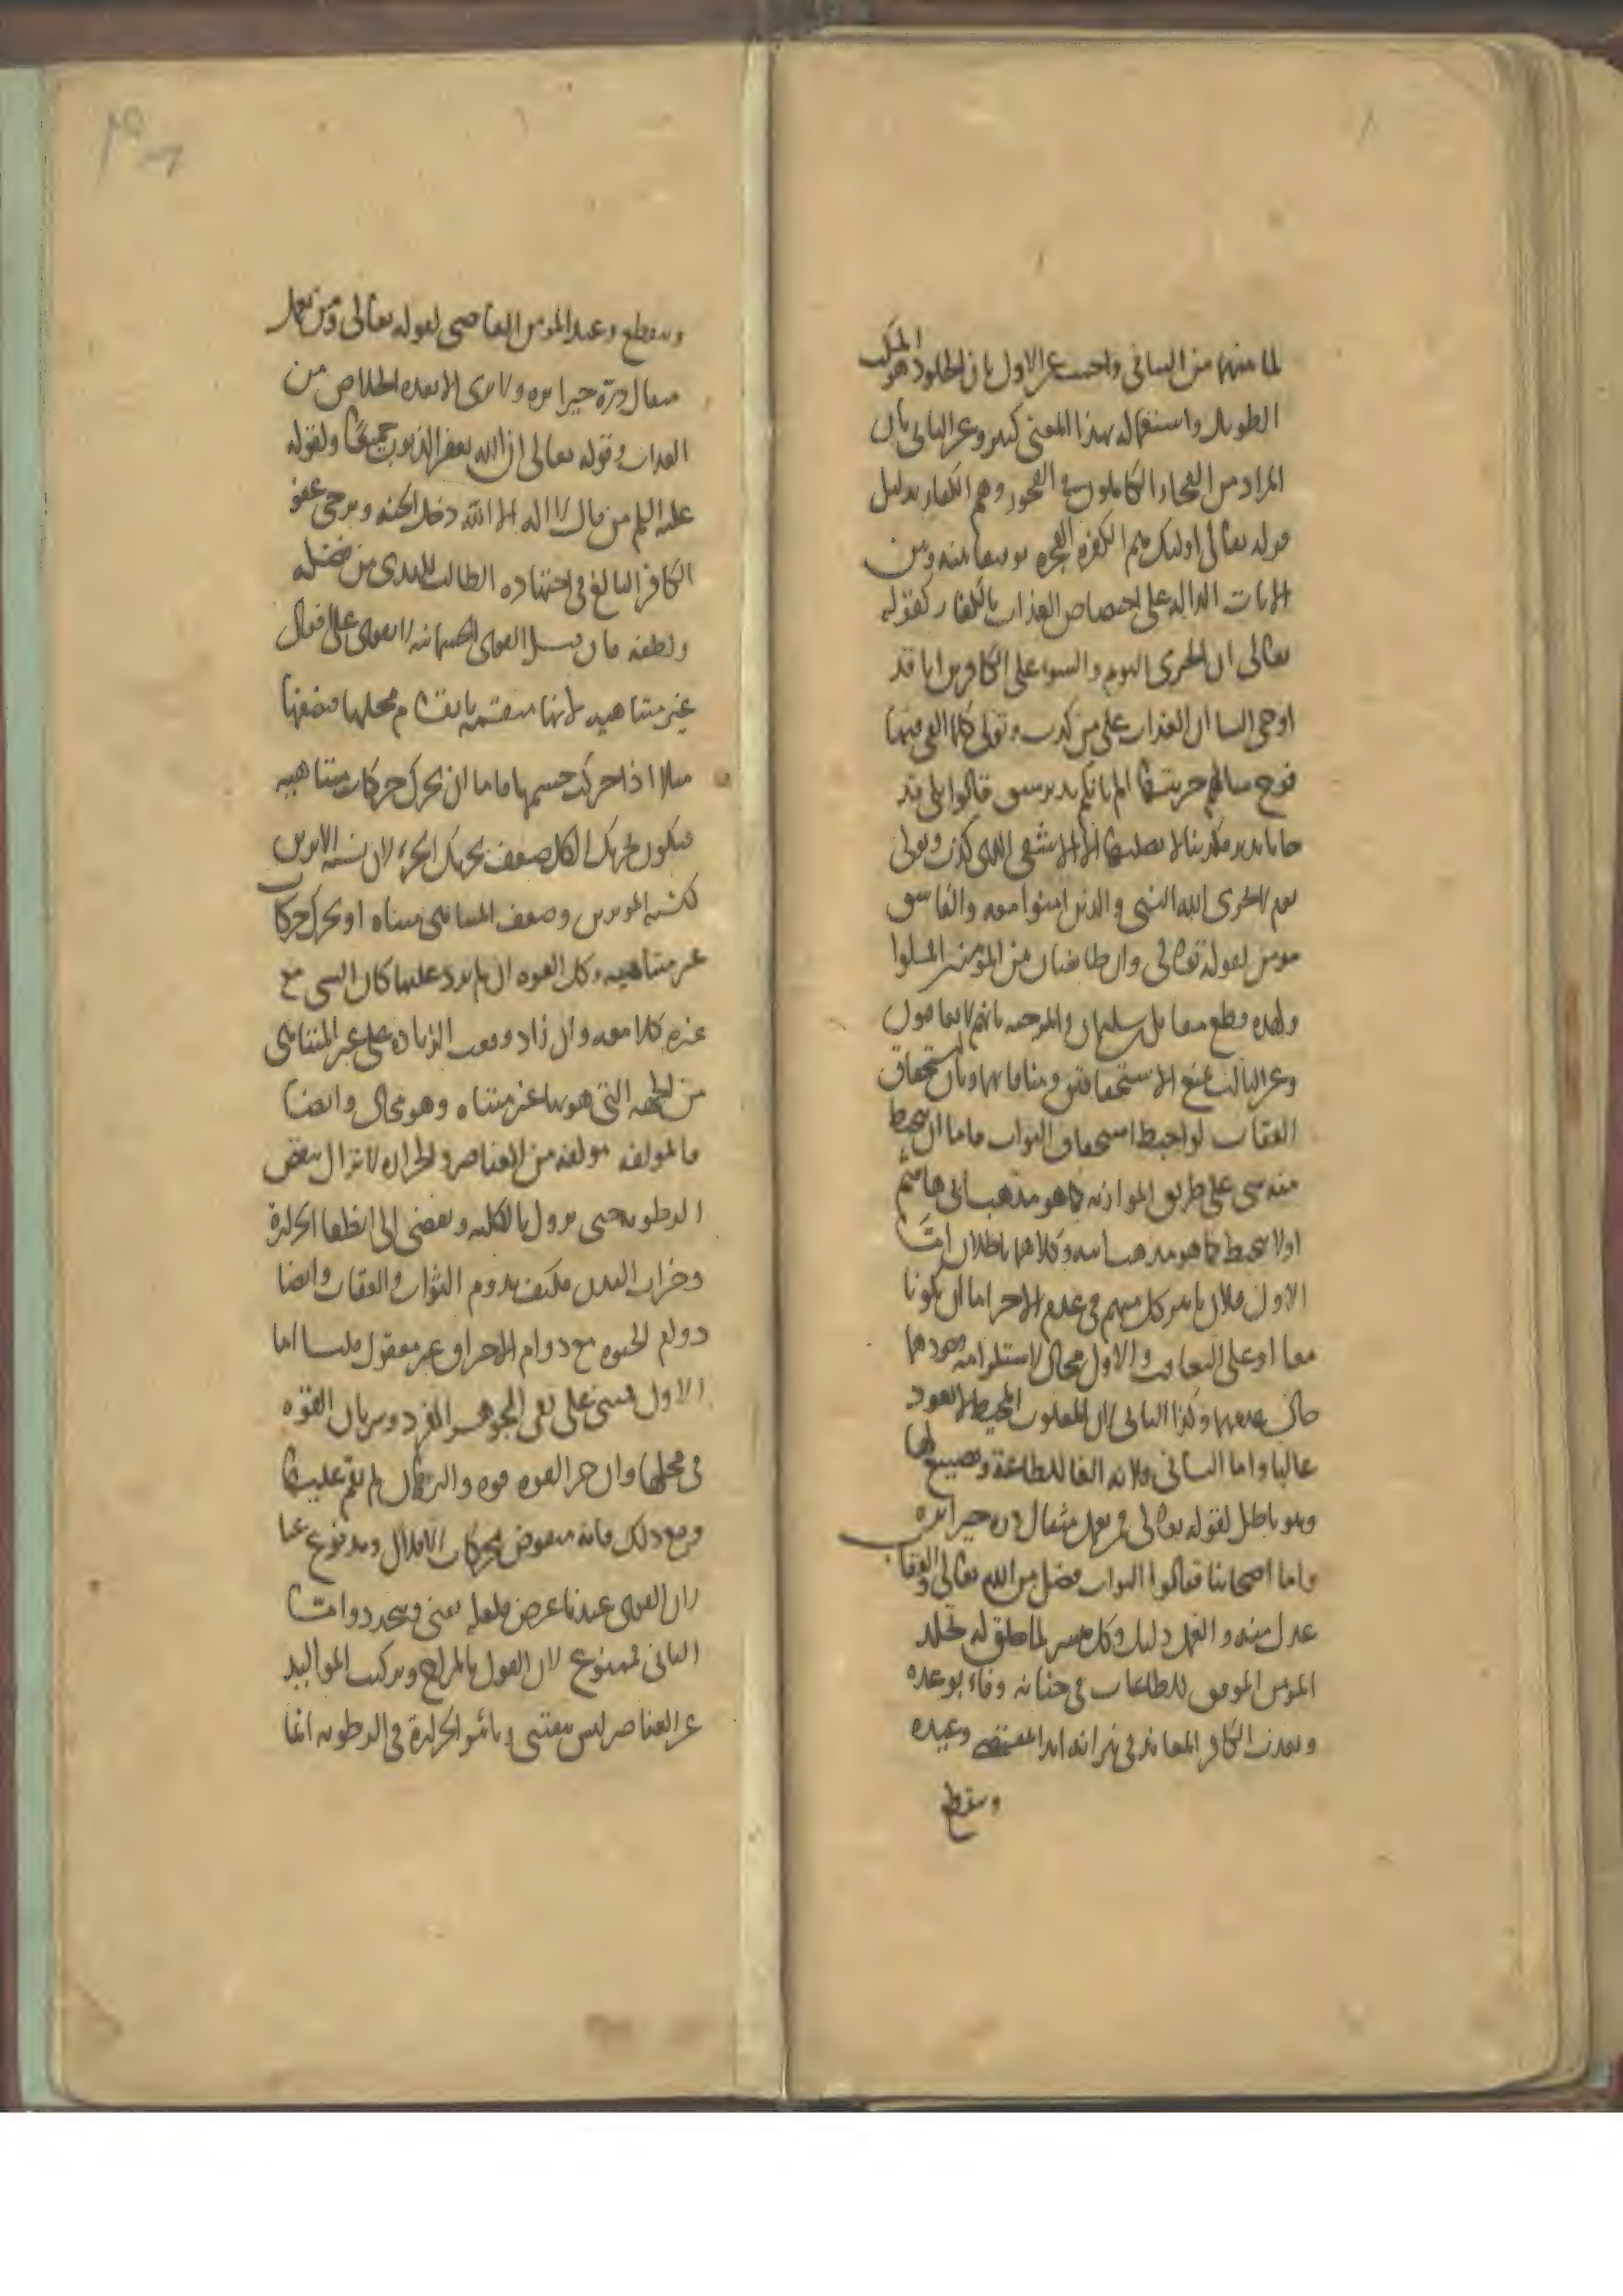 لما بينهما من التنافي واجيب عن الاول بان الخلود هو المكث
الطويل واستعماله بهذا المعنى كثير وعن الثاني بان
المراد من الفجار الكاملون في الفجور وهم الكفار بدليل
قوله تعالى اولئك هم الكفرة الفجرة توفيقا بينه وبين
الايات الدالة على اختصاص العذاب بالكفار كقوله
تعالى ان الخزي اليوم والسوء على الكافرين انا قد
اوحي الينا ان العذاب على من كذب وتولى كلما القي فيها
فوج سالهم خزنتها الم ياتكم نذير قالوا بلى قد
جانا نذير فكذبنا لا يصليها الا الاشقى الذي كذب وتولى
يوم لا يخزي الله النبي والذين امنوا معه والفاسق
مومن لقوله تعالى وان طايفتان من المؤمنين اقتتلوا
ولهذه قطع مقاتل بن سليمان والمرجية بانهم لا يعاقبون
وعن الثالث بمنع الاستحقاقين ومنافاتهما وبان استحقاق
العقاب لو احبط استحقاق الثواب فاما ان يحبط
منه شي على طريق الموازنة كما هو مذهب ابي هاشم
او لا يحبط كما هو مذهب ابيه وكلاهما باطلان اما
الاول فلان تاثير كل منهما في عدم الاخر اما ان يكونا
معا او على التعاقب والاول محال لاستلزامه وجودهما
حال عدمهما وكذا الثاني لان المغلوب المحبط لا يعود
غالبا واما الثاني فلانه الغا للطاعة وتضييع لها
وهو باطل لقوله تعالى فمن يعمل مثقال ذرة خيرا يره
واما اصحابنا فقالوا الثواب فضل من الله تعالى والعقاب
عدل منه والعمل دليل وكل ميسر لما خلق له يخلد
المؤمن الموفق للطاعات في جنانه وفاء بوعده
ويعذب الكافر المعاند في نيرانه ابدا بمقتضى وعيده
وينقطع
وينقطع وعيد المؤمن العاصي لقوله تعالى فمن يعمل
مثقال ذرة خيرا يره ولا يرى الا بعد الخلاص من
العذاب وقوله تعالى ان الله يغفر الذنوب جميعا ولقوله
عليه السلم من قال لا اله الا الله دخل الجنة ويرجى عفو
الكافر البالغ في اجتهاده الطالب للهدى من فضله
ولطفه فان قيل القوى الجسمانية لا تقوى على افعال
غير متناهية لانها منقسمة بانقسام محلها فنصفها
مثلا اذا حركت جسمها فاما ان تحرك حركات متناهية
فيكون تحريك الكل ضعف تحريك الجزء لان نسبة الاثرين
كنسبة المؤثرين وضعف المتناهي متناه او تحرك حركات
غير متناهية وكل القوة ان لم يزد عليها كان الشي مع
غيره كلا معه وان زاد وقعت الزيادة على غير المتناهي
من الجهة التي هو بها غير متناه وهو محال وايضا
فالمولفة مولفة من العناصر والحرارة لا تزال تنقص
الرطوبة حتى تزول بالكلية ويفضي الى انطفا الحرارة
وخراب البدن فكيف يدوم الثواب والعقاب وايضا
دوام الحيوة مع دوام الاحراق غير معقول قلنا اما
الاول فمبني على نفي الجوهر الفرد وسريان القوة
في محلها وان جزء القوة قوة والبرهان لم يقم عليها
ومع ذلك فانه منقوض بحركات الافلاك ومدفوع عنا
بان القوى عندنا عرض فلعله يفنى ويتجدد واما
الثاني فممنوع لان القول بالمزاج وتركيب المواليد
عن العناصر ليس بيقيني وتاثير الحرارة في الرطوبة انما